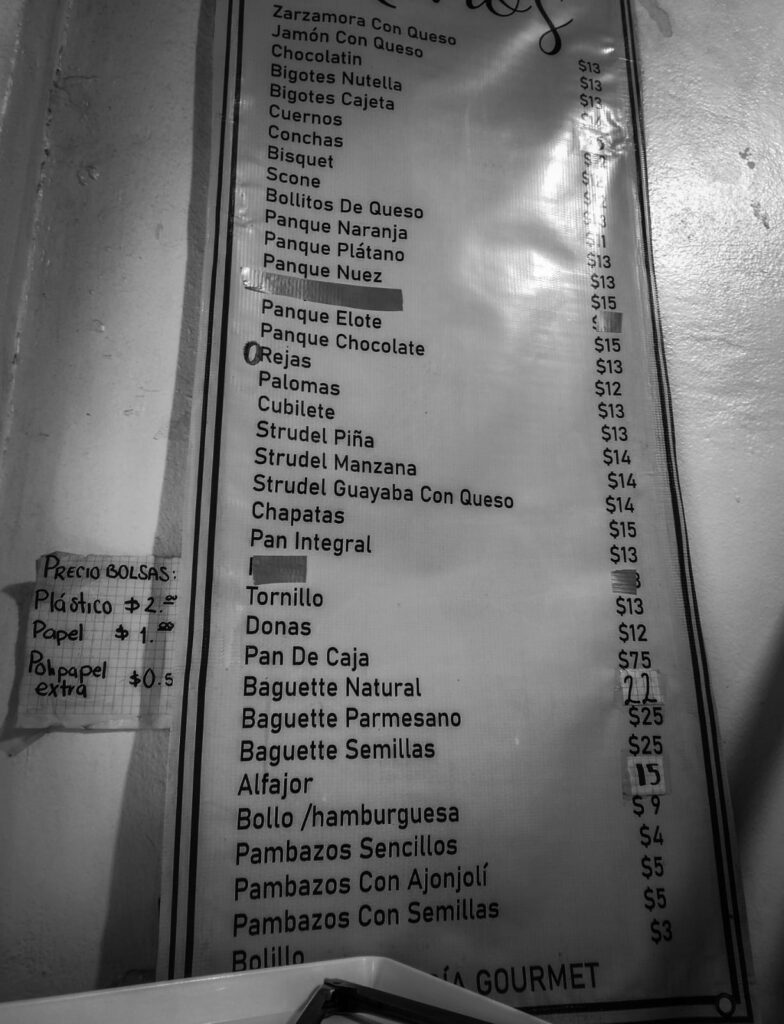 Zarzamora Con Queso $13
Jamón Con Queso $13
Chocolatin $13
Bigotes Nutella
Bigotes Cajeta
Cuernos
Conchas
Bisquet
Scone
Bollitos De Queso
Panque Naranja $13
Panque Plátano $13
Panque Nuez $15
Panque Elote $15
Panque Chocolate $13
ORejas $12
Palomas $13
Cubilete $13
Strudel Piña $14
Strudel Manzana $14
Strudel Guayaba Con Queso $14
Chapatas $15
Pan Integral $13
Tornillo $13
Donas $12
Pan De Caja $75
Baguette Natural 22
Baguette Parmesano $25
Baguette Semillas $25
Alfajor 15
Bollo /hamburguesa $9
Pambazos Sencillos $4
Pambazos Con Ajonjolí $5
Pambazos Con Semillas $5
Bolillo $3
GOURMET
PRECIO BOLSAS:
Plástico $2.00
Papel $1.00
extra $0.5